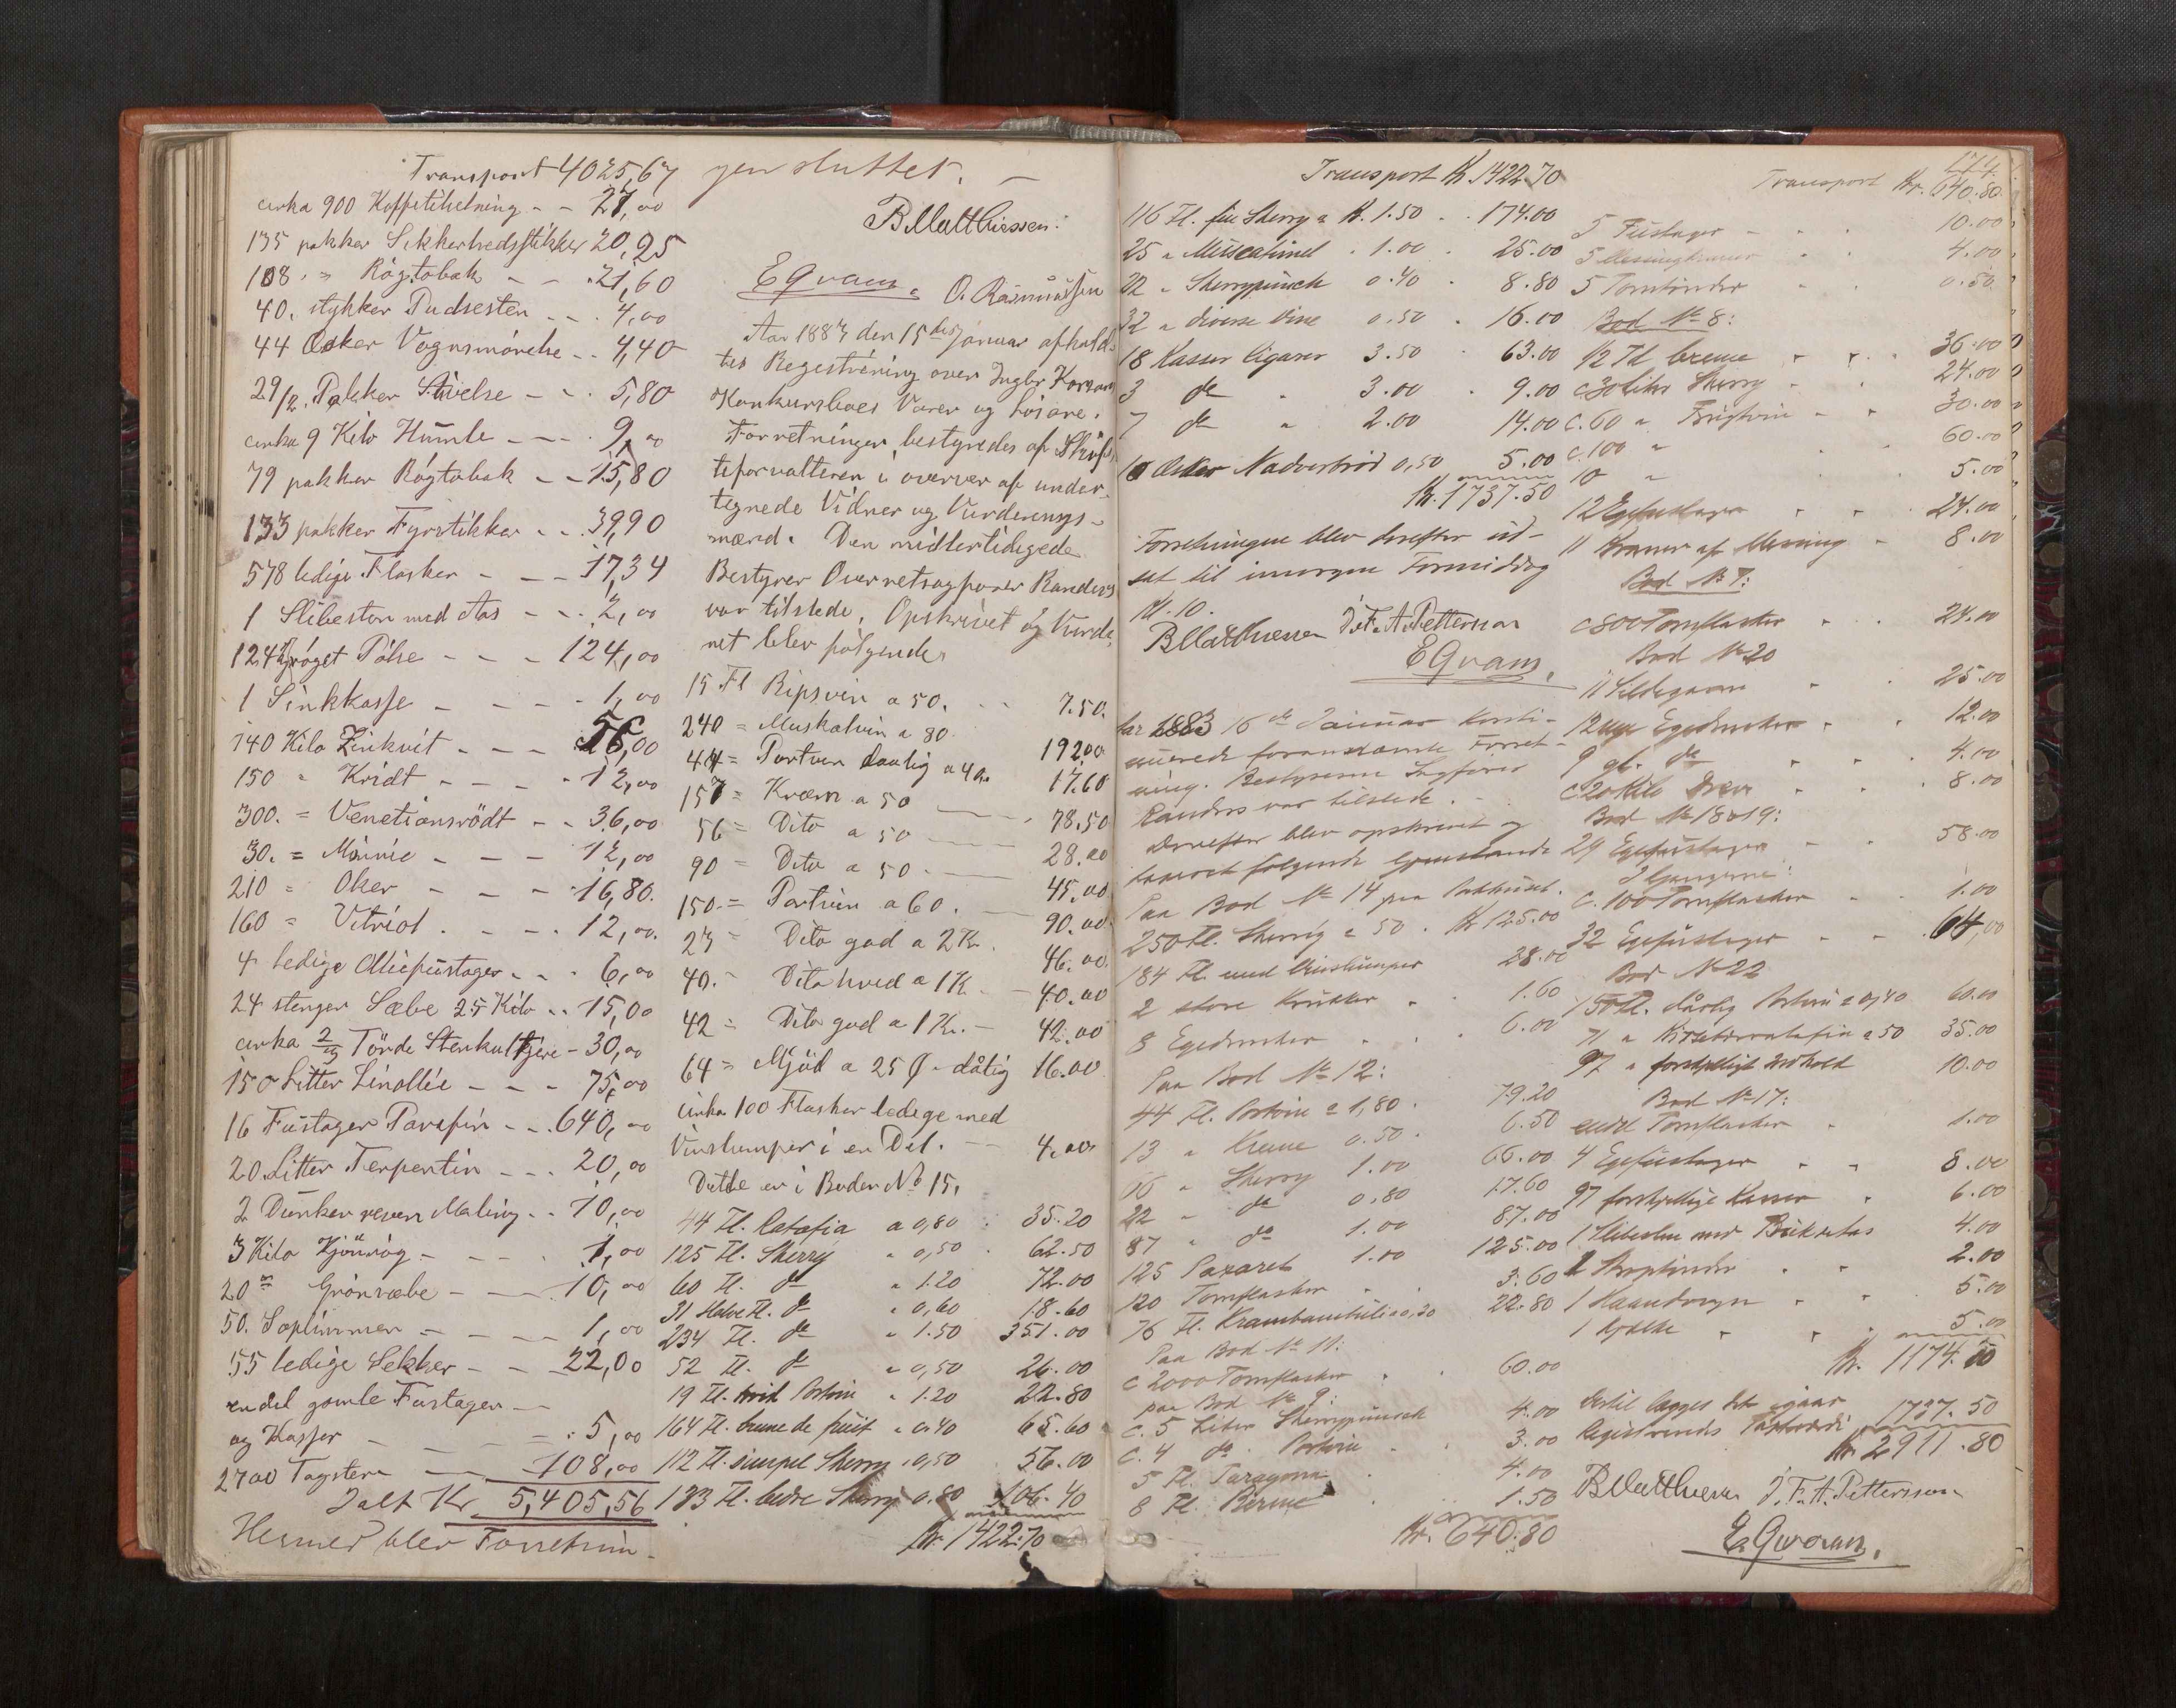 Transport 4025,67
cirka 900 Koffetilsetning - - 27,00
135 pakker Sikkerhedsstikker 20,25
108 " Rögtobak - - 21,60
40. stykker Pudsesten - - 4,00
44 Æsker Vognsmörelse - - 4,40
29/2. Pakker Stivelse - - 5,80
cirka 9 Kilo Humle - - - 9,00
79 pakker Rögtobak - - 15,80
133 pakker Fyrstikker - - 39,90
578 ledige Flasker - - - 17,34
1 Slibesten med Aas - - - 2,00
124 Kg röget Pölse - - - 124,00
1 Sinkkasse - - - - 1,00
140 Kilo Zinkvit - - - 56,00
150 = Kridt - - - - 12,00
300. = Venetiansrödt - - 36,00
30. = Mönnie - - - 12,00
210 = Oker - - - 16,80.
160 = Vitriol . - - - 12,00.
4 ledige Olliefustager - - - 6,00
24 stenger Sæbe 25 Kilo - - 15,00
cirka 2/3 Tönde Stenkultjære - 30,00
150 Litter Linollie - - - 75,00
16 Fustager Parafin - - 640,00
20 Litter Terpentin - - - 20,00
2 Dunker reven Maling - - 10,00
3 Kilo Kjönrög - - - - 1,00
20 " Grönsæbe - - - 10,00
50. Soplimmer - - - - 1,00
55 ledige Sekker - - 22,00
endel gamle Fustager -
og Kasser - - - - - 5,00
2700 Tagsten - - 108,00
Ialt Kr 5,405,56
Hermed blev Forretnin-
gen sluttet. -
B Matthiessen.
E Qvam. O. Rasmussen
Aar 1883 den 15de Januar afhold-
tes Registrering over Ingbr Korsans
Konkursboes Varer og Lösöre.
Forretningen bestyredes af Skif-
teforvalteren i overvær af under-
tegnede Vidner og Vurderings-
mænd. Den midlertidigede
Bestyrer Overretsagförer Randers
var tilstede. Opskrivet og Vurde-
ret blev fölgende
15 Fl Ripsvin a 50. - - 7.50.
240 = Muskatvin a 80 192,00
44 = Portvin daarlig a 40. 17.60
157 = Kræm a 50 - 78.50
56 = Dito a 50 - 28.00
90 = Dito a 50. - 45.00
150 = Portvin a 60. - 90.00.
23 = Dito god a 2 Kr. 46.00
40. = Dito hvid a 1 K. - 40.00
42 = Dito god a 1 Kr. - 42.00
64 = Mjöd a 25 Ø - dålig 16.00
cirka 100 Flasker ledige med
Vinslumper i en Del. - 4.00
Dette er i Boden No 15.
44 Fl. Ratafia a 0,80 . 35.20
125 Fl. Sherry " 0,50 . 62.50
60 Fl. do " 1.20 72.00
31 Halve Fl. do " 0,60 18.60
234 Fl. do " 1.50 351.00
52 Fl. do " 0,50 26.00
19 Fl. hvid Portvin " 1.20 22.80
164 Fl. creme de fruit " 0.40 65.60
112 Fl. simpel Sherry . 0,50 56.00
133 Fl. bedre Sherry 0.80 106.40
Kr. 1422.70
Transport Kr. 1422.70
116 Fl. fin Sherry a Kr. 1.50 . . 174.00
25 " Muscatinel . 1.00 . 25.00
22 " Sherrypunch 0.40 . 8.80
32 " diverse Vine 0.50 . 16.00
18 Kasser Cigarer 3.50 . 63.00
3 do " 3.00 . 9.00
7 do " 2.00 14.00
10 Æsker Nadverbröd 0,50 5.00
Kr. 1737.50
Forretningen blev derefter ud-
sat til imorgen Formiddag
Kl. 10.
B Matthiessen J. F. A. Petterson
E Qvam.
Aar 1883 16de Januar konti-
nuerede foranstaaende Forret-
ning. Bestyreren Sagförer
Randers var tilstede. -
Derefter blev opskrevet og
taxeret fölgende Gjenstande
Paa Bod No 14 paa Pakhuset.
250 Fl. Sherry a 50 . Kr 125.00
184 Fl. med Vinslumper 28.00
2 store Krukker . . 1.60
8 Egedunker . . . 6.00
Paa Bod No 12:
44 Fl. Portvin a 1,80 . 79.20
13 " Kreme 0.50 . 6.50
66 " Sherry 1.00 66.00
22 " do 0.80 17.60
87 " do 1.00 87.00
125 Paxaret 1.00 125.00
120 Tomflasker . . 3.60
76 Fl. Krambambuli a 0,30 22.80
Paa Bod No 11:
c 2000 Tomflasker . . 60.00
paa Bod No 9:
c. 5 Liter Sherrypunsch 4.00
c. 4 do. Portvin . . 3.00
5 Fl. Taragona . 4.00
8 Fl. . . 1.50
Kr. 640.80
174.
Transport Kr. 640.80
5 Fustager - . . 10.00
5 Messingkraner . . 4.00
5 Tomtönder . . 0.50
Bod No 8:
1/2 Fl. Creme . . . 36.00
c 30 Liter Sherry - . 24.00
c. 60 " Frugtvin - . 30.00
c. 100 " . 60.00
10 " 5.00
12 Egefustager . . 24.00
11 Kraner af Messing - 8.00
Bod No 7:
c 800 Tomflasker . . 24.00
Bod No 20
11 Sildegarn . . 25.00
12 nye Egedunker . . 12.00
9 gl. do . . . 4.00
c 20 Kilo Drev . . . 8.00
Bod No 18 & 19:
29 Egefustager . . 58.00
I Gangerne:
c. 100 Tomflasker . . 1.00
32 Egefustager - - . 64,00
Bod No 22
150 Fl. dårlig Portvin a 0,40 60.00
71 " Kirsebærratafia a 50 35.00
97 " forskjelligt indhold 10.00
Bod No 17:
endel Tomflasker . 1.00
4 Egefustager . . 8.00
97 forskjellige Kasser . 6.00
1 Slibesten med Buk & Aas 4.00
2 . . 2.00
1 Haandvogn . . 5.00
1 Kjælke . . . 5.00
Kr. 1174.30
Dertil lægges det igaar
registrerede 1737.50
Kr. 2911.80
B Matthiessen J. F. A. Petterson
E. Qvam.